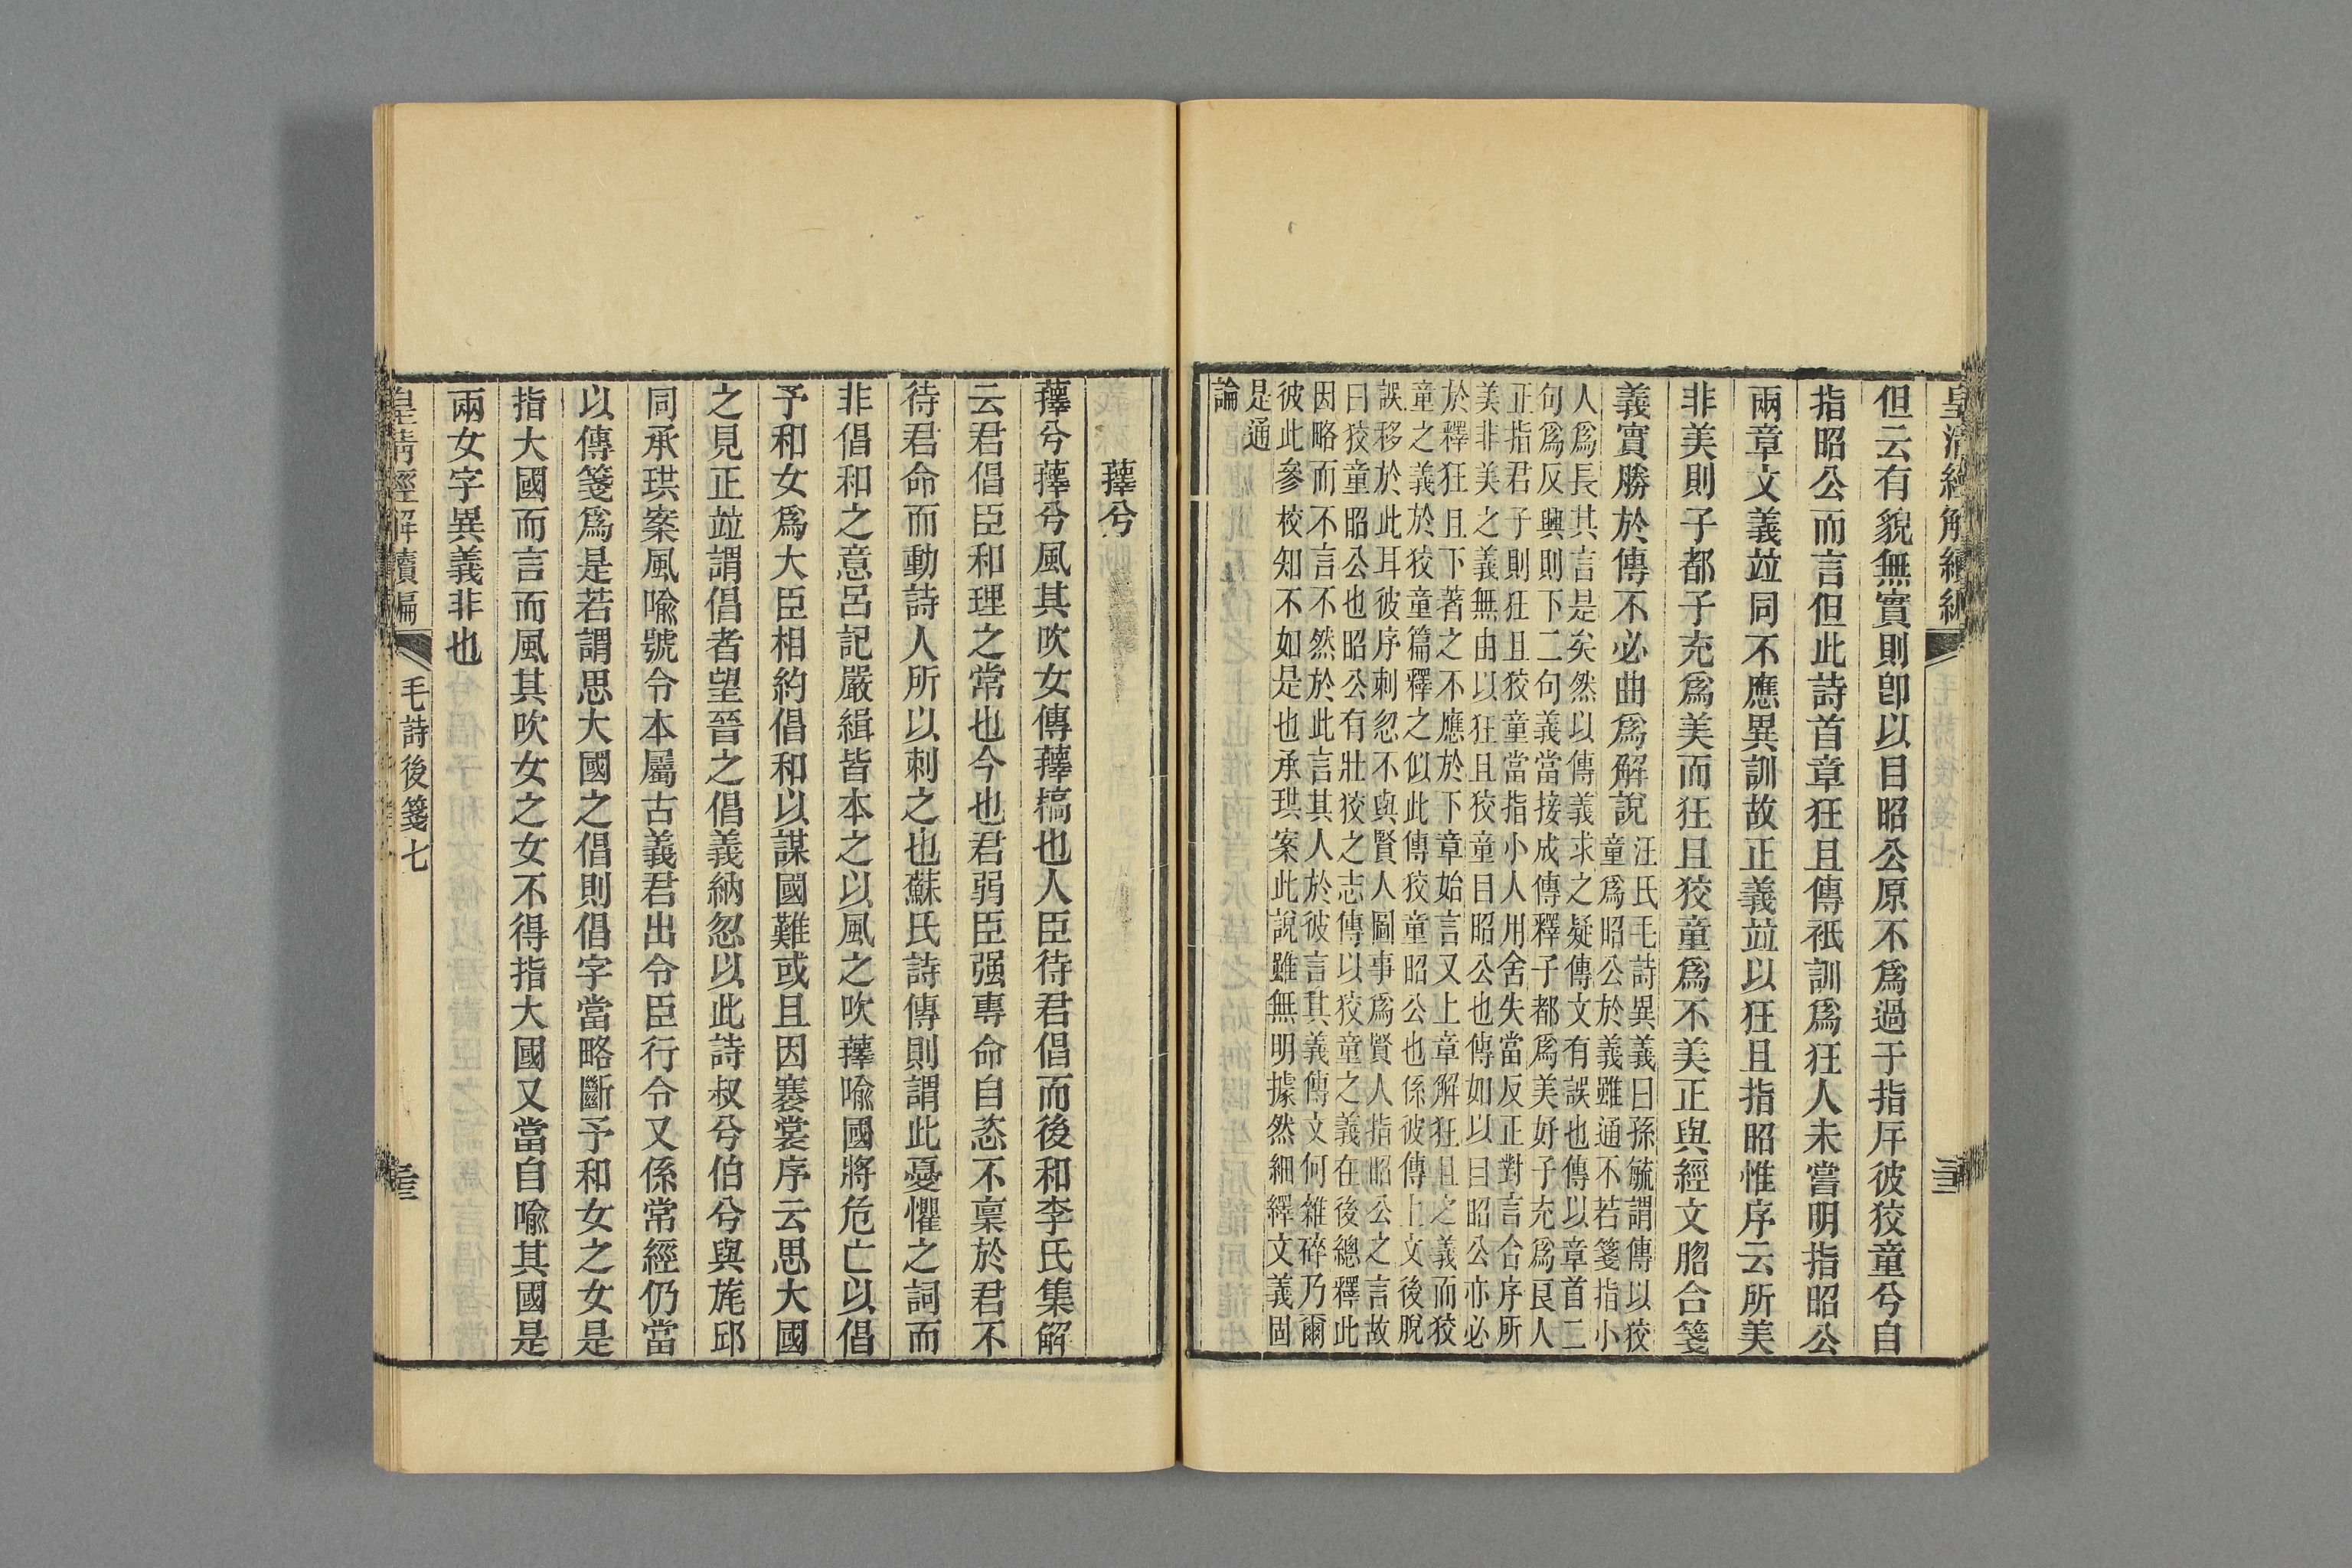 皇清經解續編
但云有貌無實則卽以目昭公原不爲過于指斥彼狡童兮自
指昭公而言但此詩首章狂且傳衹訓爲狂人未嘗明指昭公
兩章文義竝同不應異訓故正義竝以狂且指昭惟序云所美
非美則子都子充爲美而狂且狡童爲不美正與經文脗合箋
義實勝於傳不必曲爲解說
汪氏毛詩異義曰孫毓謂傳以狡
童爲昭公於義雖通不若箋指小
人爲長其言是矣然以傳義求之疑傳文有誤也傳以章首二
句爲反興則下二句義當接成傳釋子都爲美好子充爲良人
正指君子則狂且狡童當指小人用舍失當反正對言合序所
美非美之義無由以狂且狡童目昭公也傳如以目昭公亦必
於釋狂且下著之不應於下章始言又上章解狂且之義而狡
童之義於狡童篇釋之似此傳狡童昭公也係彼傳上文後脫
誤移於此耳彼序刺忽不與賢人圖事爲賢人指昭公之言故
曰狡童昭公也昭公有壯狡之志傳以狡童之義在後總釋此
因略而不言不然於此言其人於彼言其義傳文何雜碎乃爾
彼此參校知不如是也承珙案此說雖無明據然細繹文義固
是通
論
蘀兮
蘀兮蘀兮風其吹女傳蘀槁也人臣待君倡而後和李氏集解
云君倡臣和理之常也今也君弱臣强專命自恣不稟於君不
待君命而動詩人所以刺之也蘇氏詩傳則謂此憂懼之詞而
非倡和之意呂記嚴緝皆本之以風之吹蘀喩國將危亡以倡
予和女爲大臣相約倡和以謀國難或且因褰裳序云思大國
之見正竝謂倡者望晉之倡義納忽以此詩叔兮伯兮與旄邱
同承珙案風喩號令本屬古義君出令臣行令又係常經仍當
以傳箋爲是若謂思大國之倡則倡字當略斷予和女之女是
指大國而言而風其吹女之女不得指大國又當自喩其國是
兩女字異義非也
皇清經解續編
毛詩後箋七